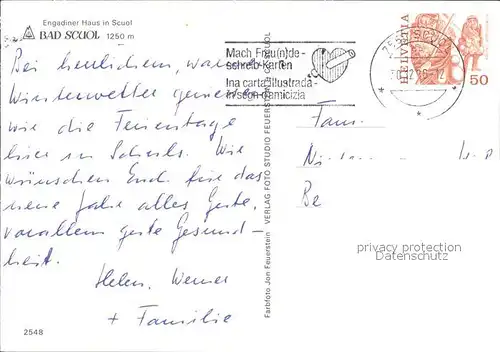 Engadiner Haus in Scuol
BAD SCUOL 1250 m
Bei herrlichem, warmen
Winterwetter geniessen
wir die Ferientage
hier in Schuls. Wir
wünschen Euch für das
neue Jahr alles Gute,
vorallem gute Gesund-
heit.
Helen, Werner
+ Familie
2548
Farbfoto Jon Feuerstein VERLAG FOTO STUDIO FEUERSTEIN SCUOL
Mach Freu(n)de-
schreib Karten
Ina carta illustrada-
in segn d'amicizia
HELVETIA
50
Fam.
Be
privacy protection
Datenschutz